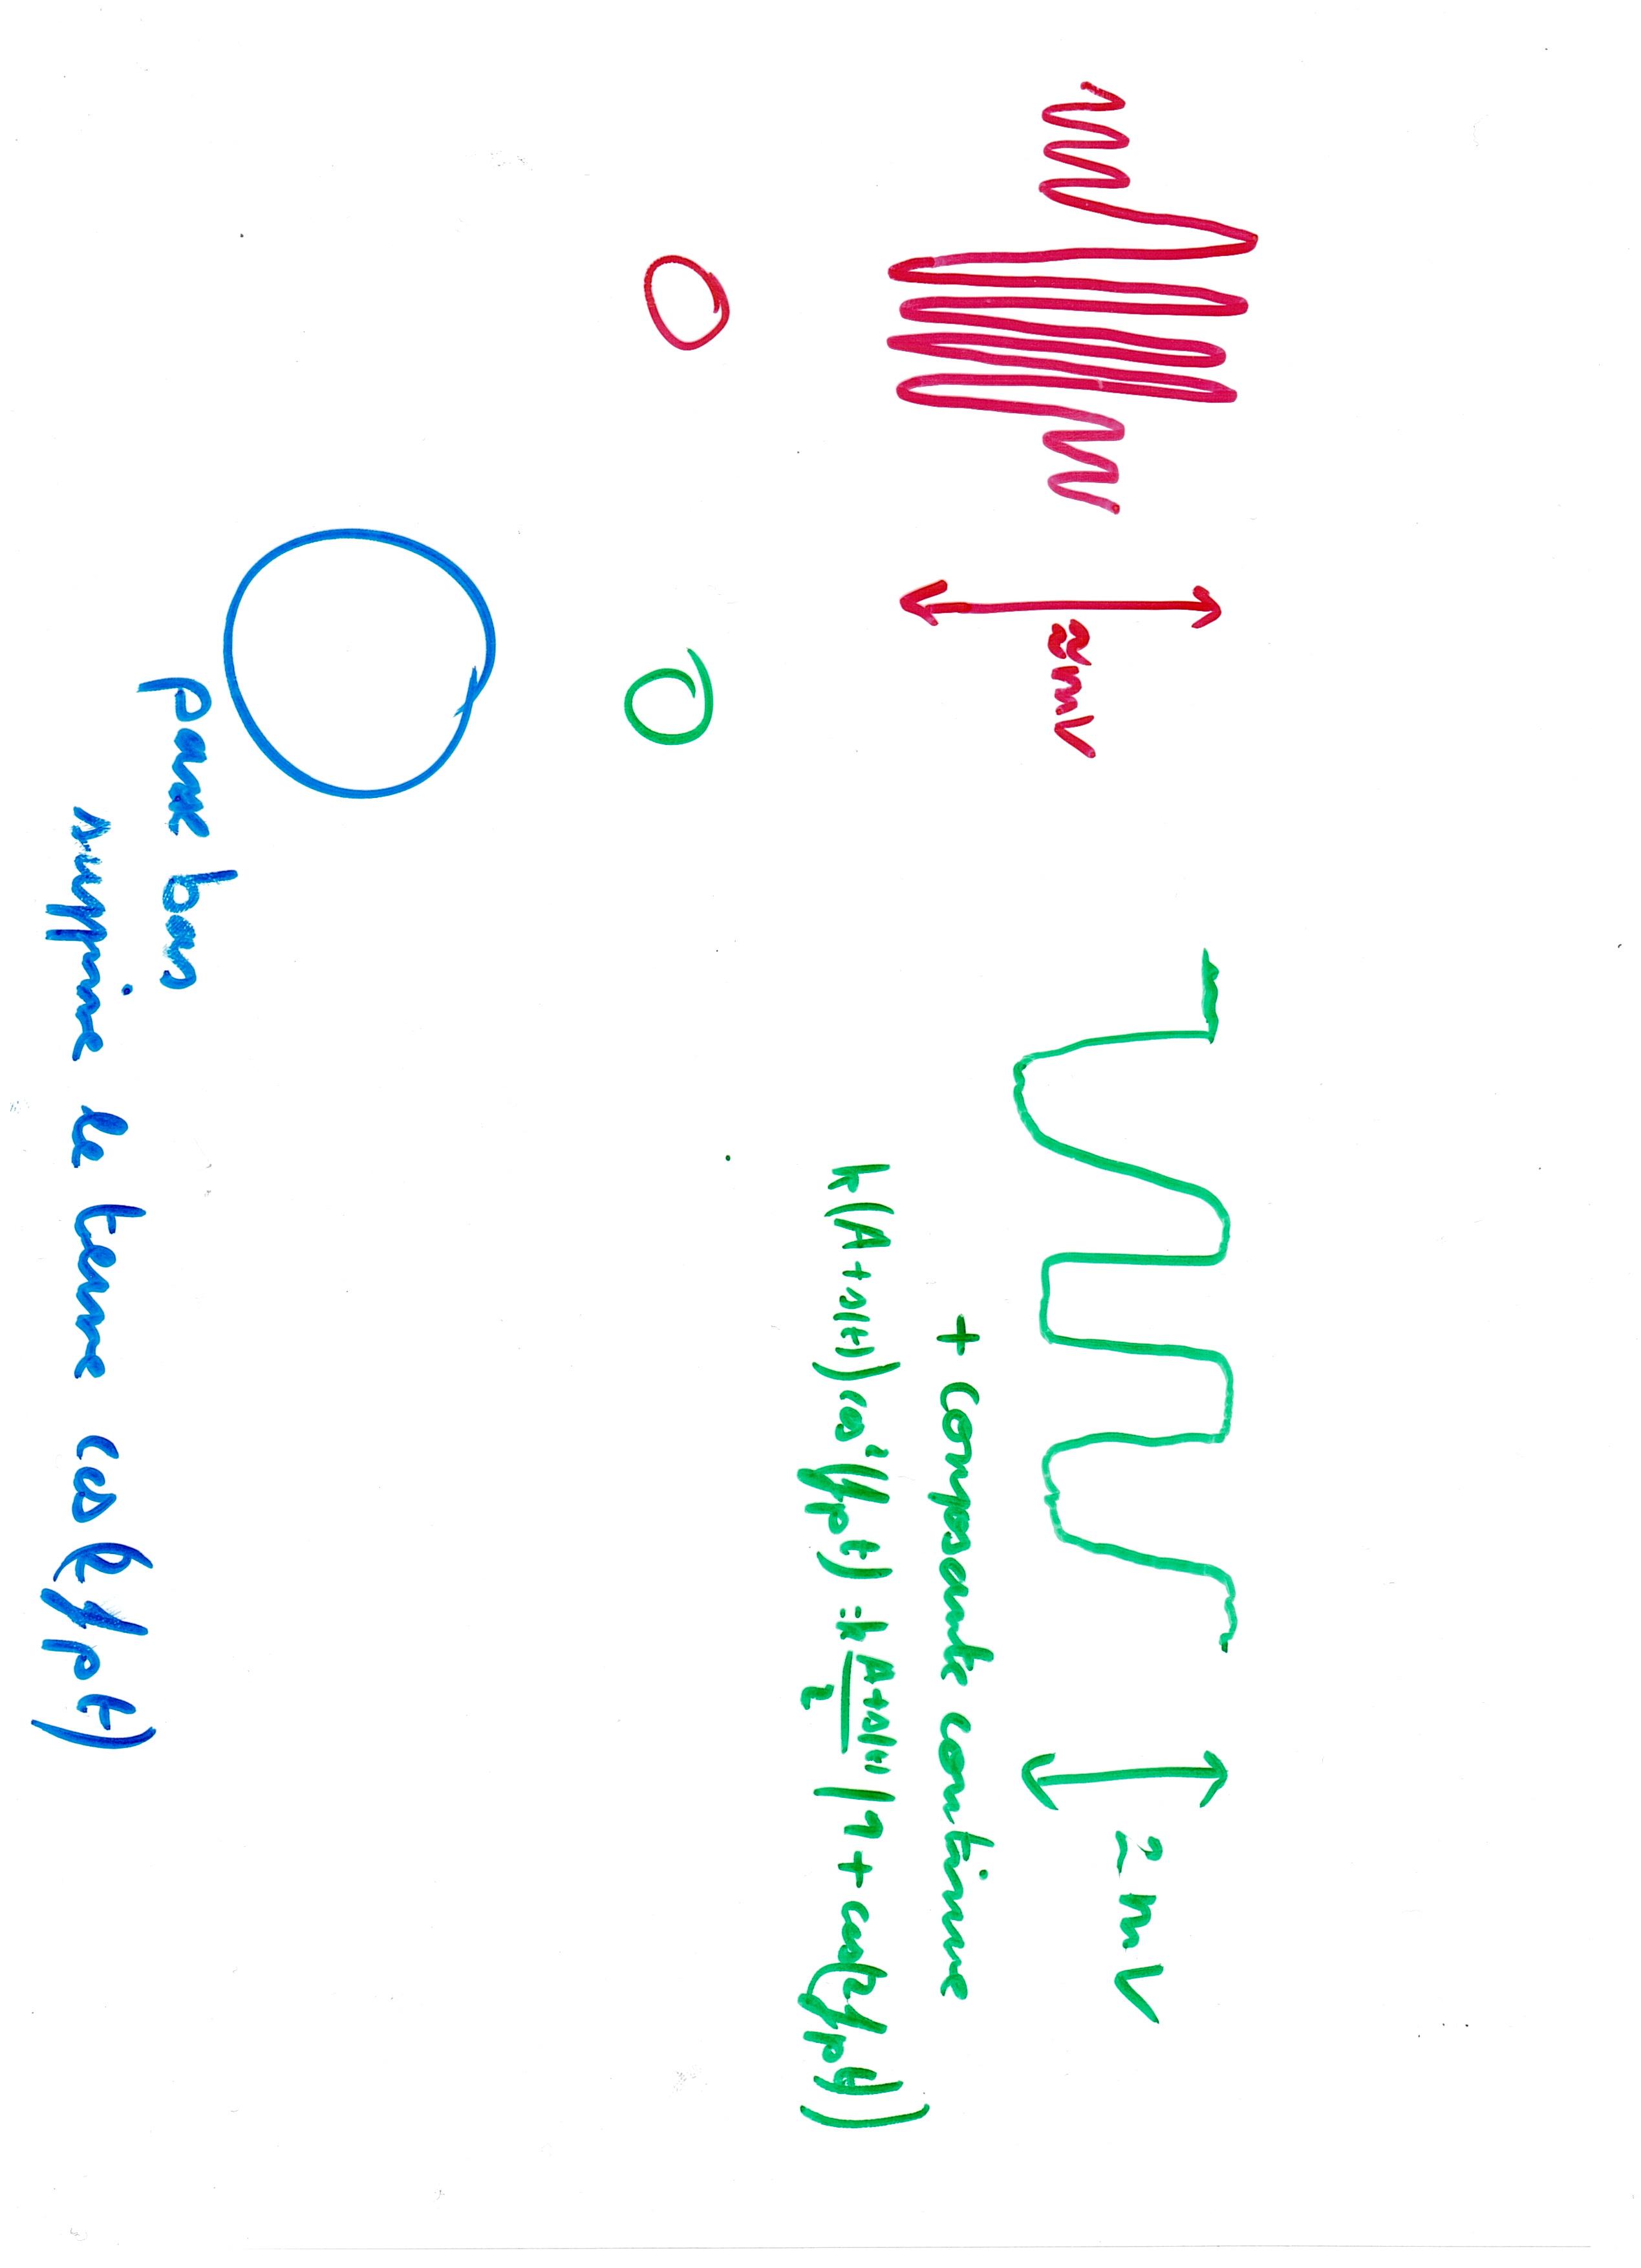 ≈mV
≃ mV
+ composante continue
k(A+s(t)) cos²(fp t) = k A+s(t)/2 (1 + cos(2fp t))
passe bas
supprime le terme cos(2fp t)